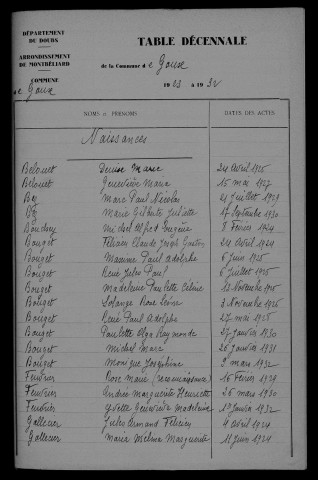 DÉPARTEMENT
DU DOUBS
ARRONDISSEMENT
DE MONTBÉLIARD
COMMUNE
de Goux
TABLE DÉCENNALE
de la Commune de Goux
1923 à 1932
NOMS et PRÉNOMS DATES DES ACTES
Naissances
Belouet Denise Marie 24 Avril 1925
Belouet Geneviève Marie 15 mai 1927
Bey Marc Paul Nicolas 21 juillet 1929
Bey Marie Gilberte Juliette 17 Septembre 1930
Michel Alfred Eugène 8 Février 1924
Bouget Félicien Claude Joseph Gaston 24 Avril 1924
Bouget Maxime Paul Adolphe 6 juin 1925
Bouget René Jules Paul 6 Juillet 1925
Bouget Madeleine Paulette Céline 13 Novembre 1925
Bouget Solange Rose 3 Novembre 1926
Bouget René Paul Adolphe 27 mai 1925
Bouget Paulette Olga Raymonde 27 Janvier 1930
Bouget Michel Marc 26 Janvier 1931
Bouget Monique Joséphine 3 mars 1932
Feuvrier Rose Marie (reconnaissance) 16 Février 1929
Feuvrier Andrée Marguerite Henriette 26 mars 1930
Feuvrier Yvette Geneviève Madeleine 1er Janvier 1932
Gallecier Jules Armand Félicien 4 Avril 1924
Gallecier Maria Melina Marguerite 11 Juin 1924